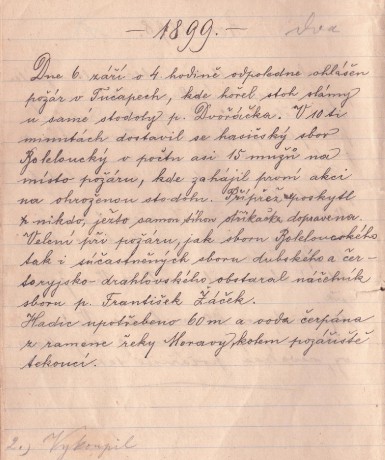 — 1899. —
dva
Dne 6. září o 4 hodině odpoledne ohlášen
požár v Tučapech, kde hořel stoh slámy
u samé stodoly p. Dvořáčka. V 10 ti
minutách dostavil se hasičský sbor
Boteloucký v počtu asi 15 mužů na
místo požáru, kde zahájil první akci
na ohroženou stodolu. Přípřež poskytl
nikdo, ježto samon tíhou stříkačka dopravena.
Velení při požáru, jak sboru Bolelouckého
tak i súčastněných sboru dubského a čer-
toryjsko-drahlovského obstaral náčelník
sboru p. František Žáček.
Hadic upotřebeno 60 m a voda čerpána
z ramene řeky Moravy, kolem požářiště
tekoucí.
2.) Vykoupil